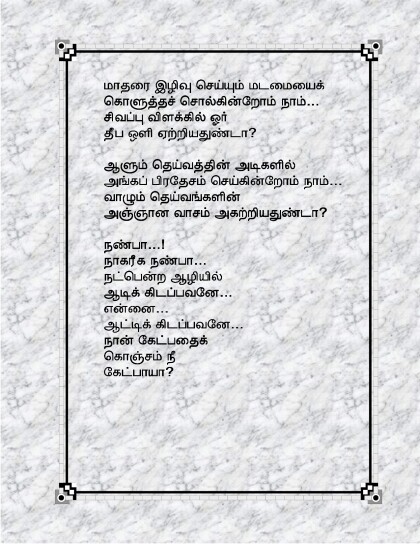 மாதரை இழிவு செய்யும் மடமையைக்
கொளுத்தச் சொல்கின்றோம் நாம்...
சிவப்பு விளக்கில் ஓர்
தீப ஒளி ஏற்றியதுண்டா?
ஆளும் தெய்வத்தின் அடிகளில்
அங்கப் பிரதேசம் செய்கின்றோம் நாம்...
வாழும் தெய்வங்களின்
அஞ்ஞான வாசம் அகற்றியதுண்டா?
நண்பா...!
நாகரீக நண்பா...
நட்பென்ற ஆழியில்
ஆடிக் கிடப்பவனே...
என்னை...
ஆட்டிக் கிடப்பவனே...
நான் கேட்பதைக்
கொஞ்சம் நீ
கேட்பாயா?